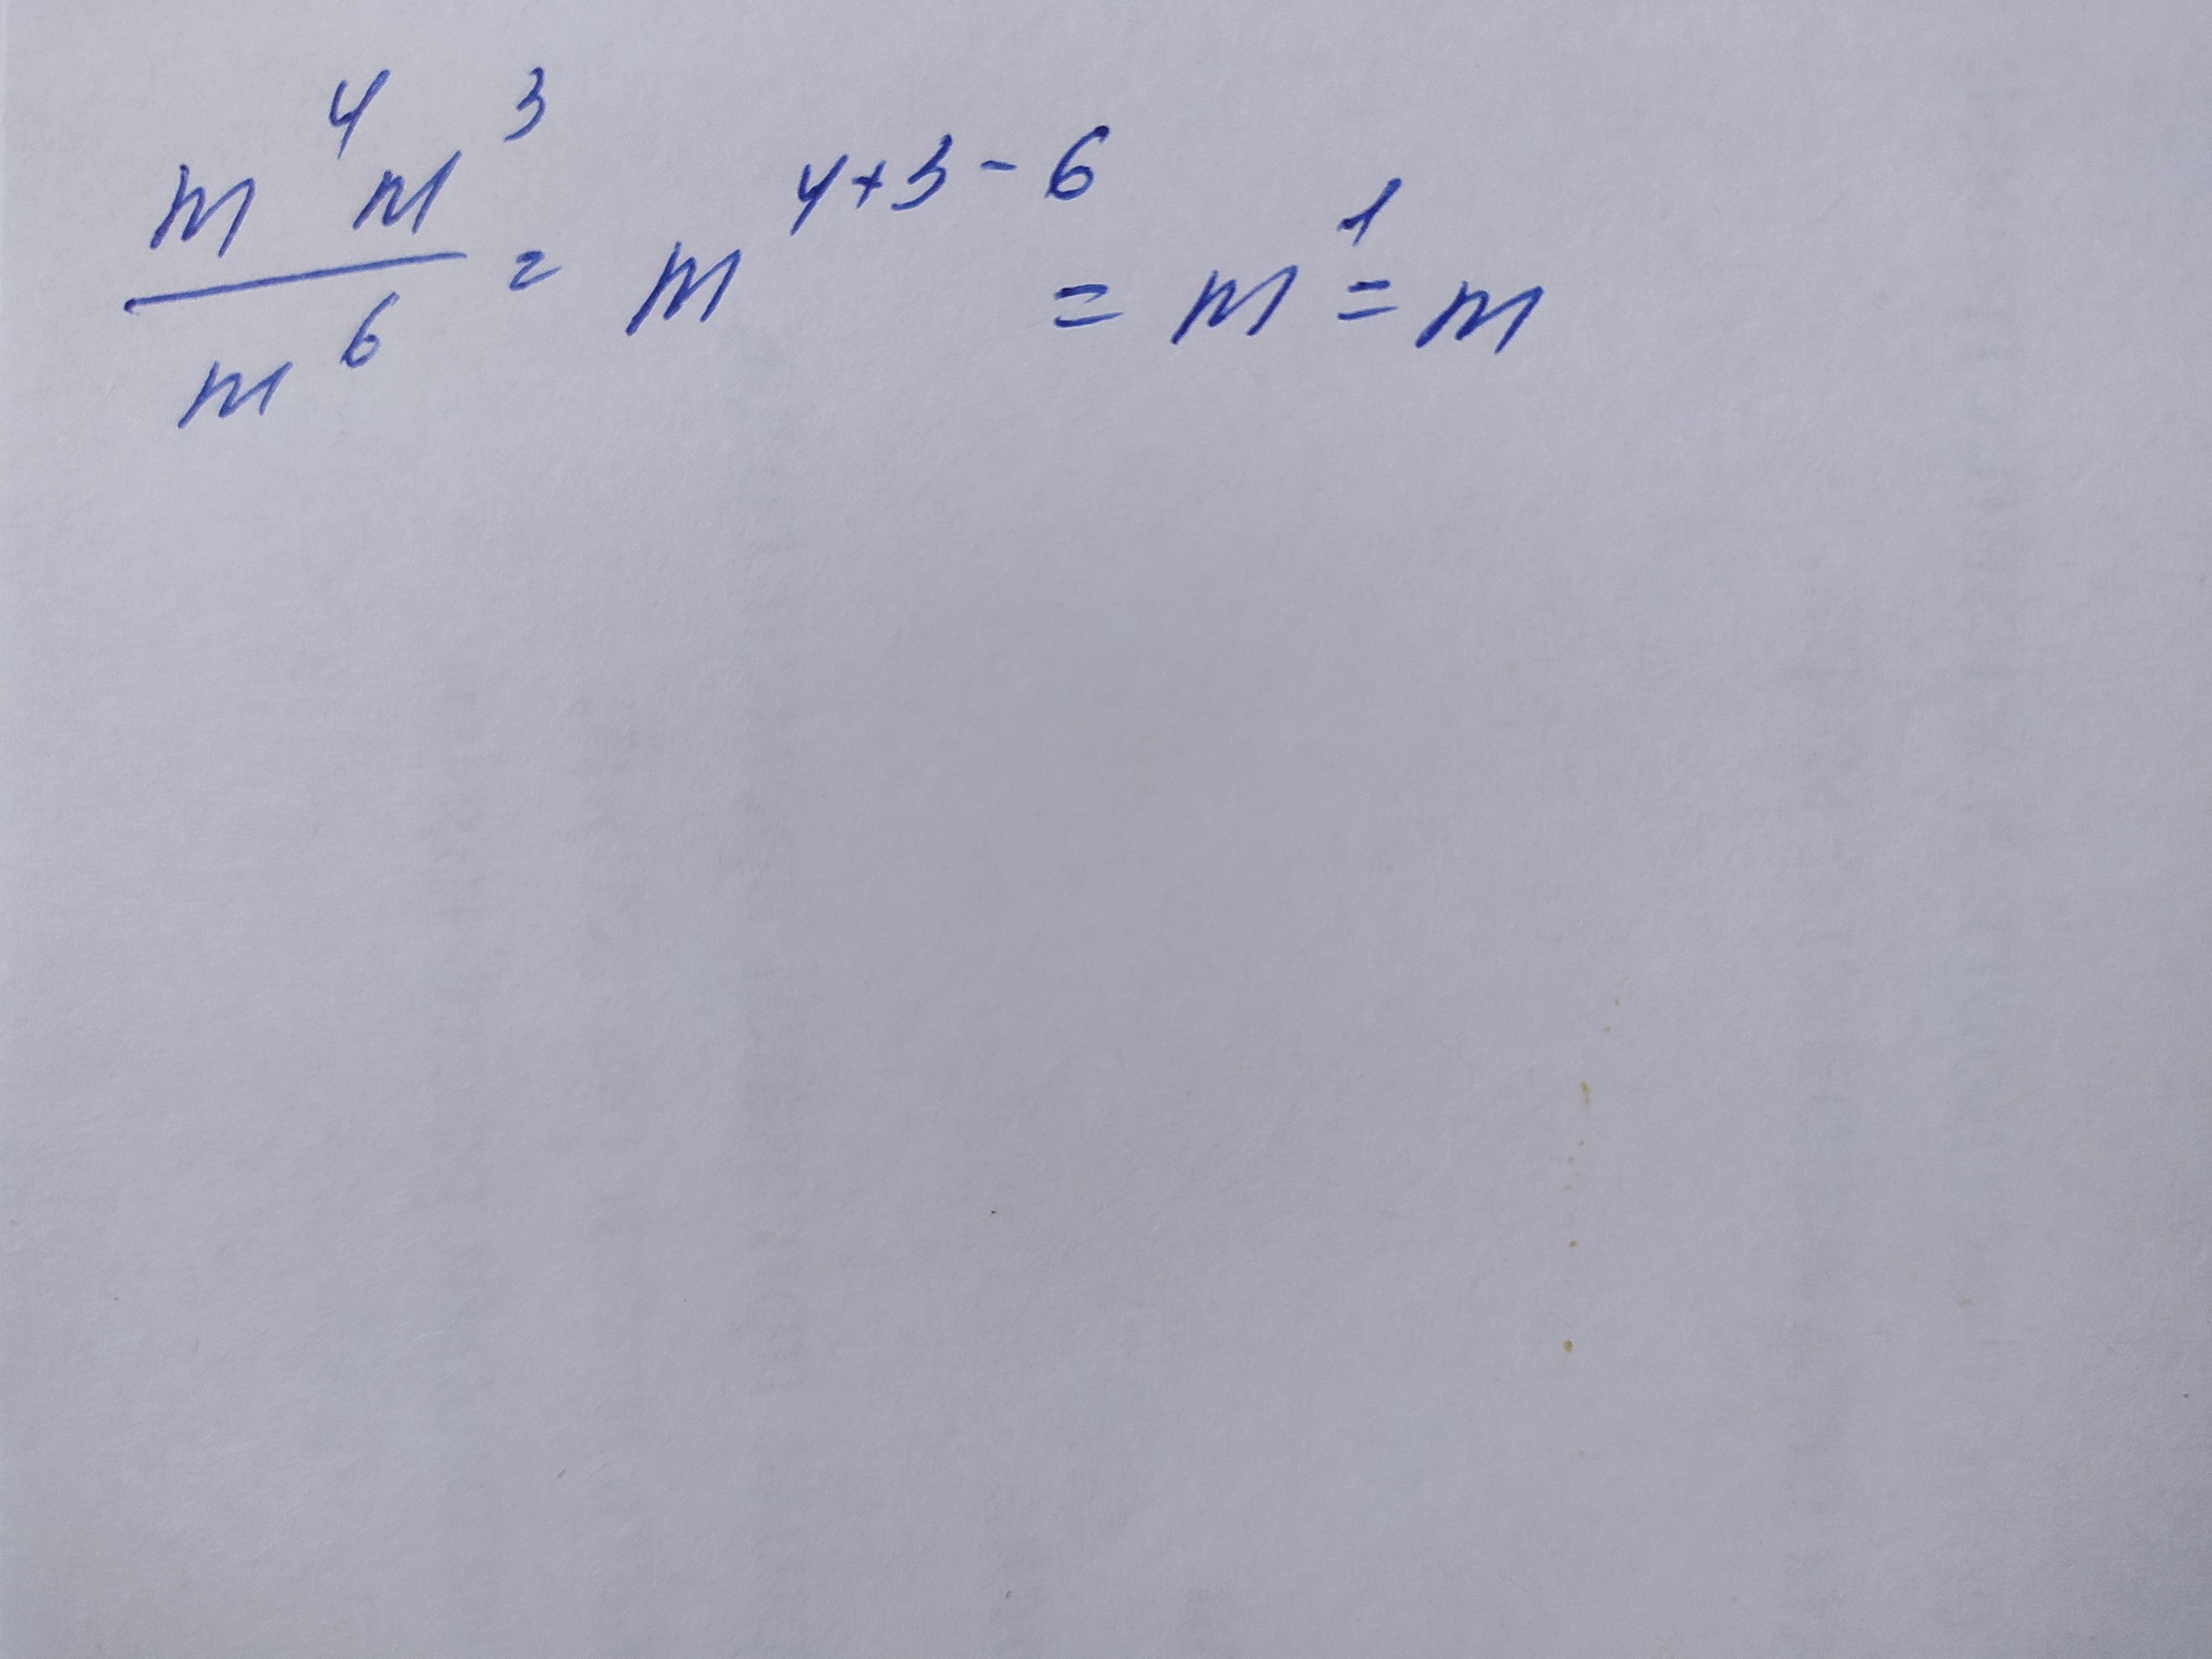 m⁴m³/m⁶ = m⁴⁺³⁻⁶ = m¹ = m